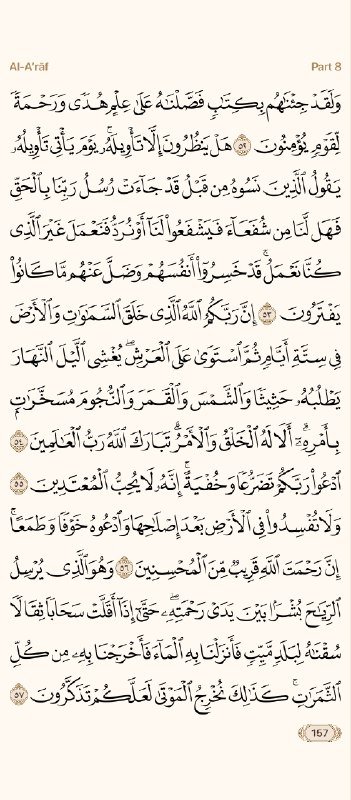 Al-A'rāf
Part 8
وَلَقَدۡ جِئۡنَٰهُم بِكِتَٰبٖ فَصَّلۡنَٰهُ عَلَىٰ عِلۡمٍ هُدٗى وَرَحۡمَةٗ
لِّقَوۡمٖ يُؤۡمِنُونَ ٥٢ هَلۡ يَنظُرُونَ إِلَّا تَأۡوِيلَهُۥۚ يَوۡمَ يَأۡتِي تَأۡوِيلُهُۥ
يَقُولُ ٱلَّذِينَ نَسُوهُ مِن قَبۡلُ قَدۡ جَآءَتۡ رُسُلُ رَبِّنَا بِٱلۡحَقِّ
فَهَل لَّنَا مِن شُفَعَآءَ فَيَشۡفَعُواْ لَنَآ أَوۡ نُرَدُّ فَنَعۡمَلَ غَيۡرَ ٱلَّذِي
كُنَّا نَعۡمَلُۚ قَدۡ خَسِرُوٓاْ أَنفُسَهُمۡ وَضَلَّ عَنۡهُم مَّا كَانُواْ
يَفۡتَرُونَ ٥٣ إِنَّ رَبَّكُمُ ٱللَّهُ ٱلَّذِي خَلَقَ ٱلسَّمَٰوَٰتِ وَٱلۡأَرۡضَ
فِي سِتَّةِ أَيَّامٖ ثُمَّ ٱسۡتَوَىٰ عَلَى ٱلۡعَرۡشِۖ يُغۡشِي ٱلَّيۡلَ ٱلنَّهَارَ
يَطۡلُبُهُۥ حَثِيثٗا وَٱلشَّمۡسَ وَٱلۡقَمَرَ وَٱلنُّجُومَ مُسَخَّرَٰتِۭ
بِأَمۡرِهِۦٓۗ أَلَا لَهُ ٱلۡخَلۡقُ وَٱلۡأَمۡرُۗ تَبَارَكَ ٱللَّهُ رَبُّ ٱلۡعَٰلَمِينَ ٥٤
ٱدۡعُواْ رَبَّكُمۡ تَضَرُّعٗا وَخُفۡيَةًۚ إِنَّهُۥ لَا يُحِبُّ ٱلۡمُعۡتَدِينَ ٥٥
وَلَا تُفۡسِدُواْ فِي ٱلۡأَرۡضِ بَعۡدَ إِصۡلَٰحِهَا وَٱدۡعُوهُ خَوۡفٗا وَطَمَعًاۚ
إِنَّ رَحۡمَتَ ٱللَّهِ قَرِيبٞ مِّنَ ٱلۡمُحۡسِنِينَ ٥٦ وَهُوَ ٱلَّذِي يُرۡسِلُ
ٱلرِّيَٰحَ بُشۡرَۢا بَيۡنَ يَدَيۡ رَحۡمَتِهِۦۖ حَتَّىٰٓ إِذَآ أَقَلَّتۡ سَحَابٗا ثِقَالٗا
سُقۡنَٰهُ لِبَلَدٖ مَّيِّتٖ فَأَنزَلۡنَا بِهِ ٱلۡمَآءَ فَأَخۡرَجۡنَا بِهِۦ مِن كُلِّ
ٱلثَّمَرَٰتِۚ كَذَٰلِكَ نُخۡرِجُ ٱلۡمَوۡتَىٰ لَعَلَّكُمۡ تَذَكَّرُونَ ٥٧
157